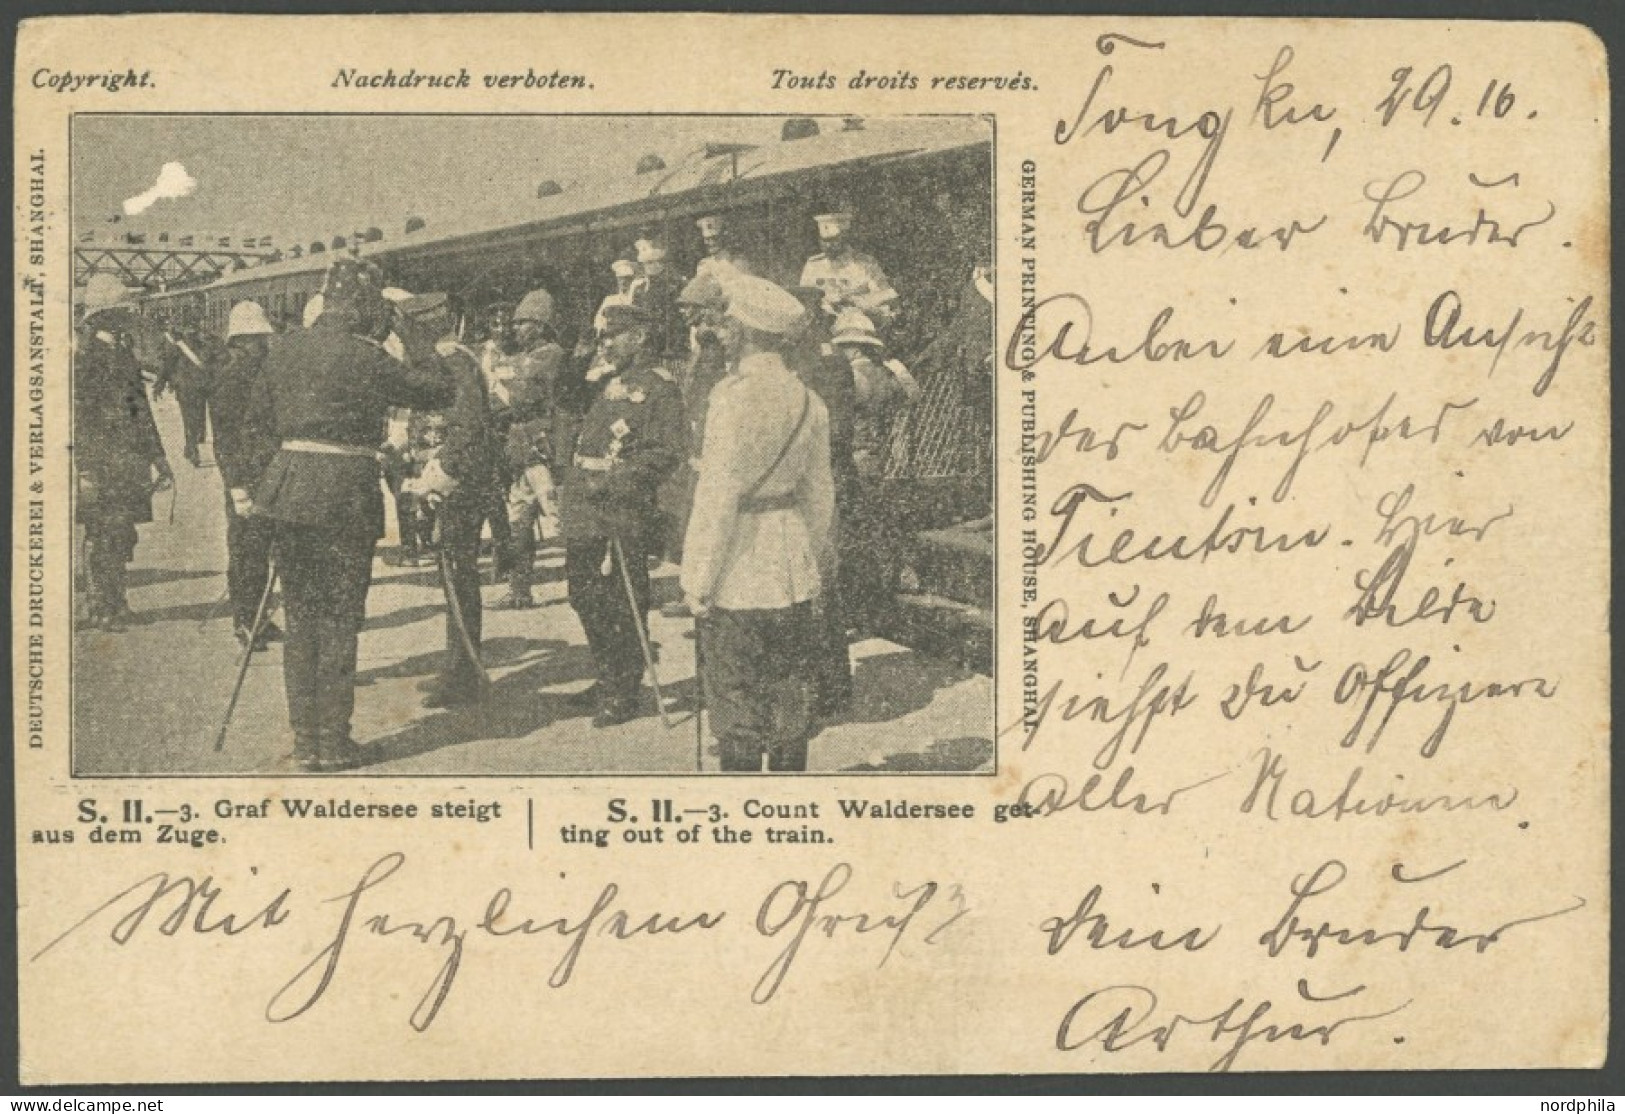 Copyright. Nachdruck verboten. Touts droits reservés.
DEUTSCHE DRUCKEREI & VERLAGSANSTALT, SHANGHAI.
GERMAN PRINTING & PUBLISHING HOUSE, SHANGHAI.
S. II.—3. Graf Waldersee steigt
aus dem Zuge.
S. II.—3. Count Waldersee get-
ting out of the train.
Tongku, 29.10.
Lieber Bruder.
Anbei eine Ansicht
des Bahnhofes von
Tientsin. Hier
auf dem Bilde
siehst Du Offiziere
aller Nationen.
Mit herzlichem Gruß
Dein Bruder
Arthur.
nordphila